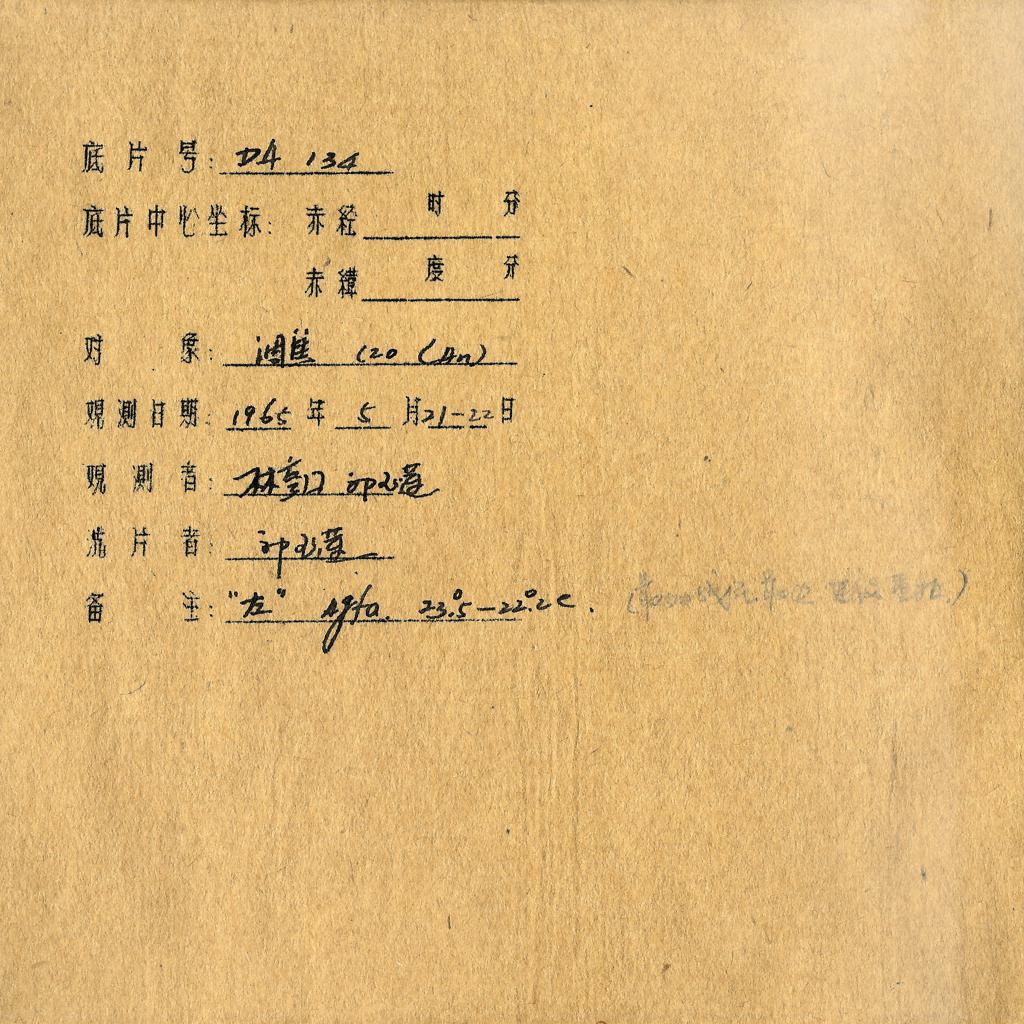 底片号: D4 134
底片中心坐标: 赤经 时 分
赤纬 度 分
对象: 调焦 120 (An)
观测日期: 1965年5月21-22日
观测者: 林
洗片者:
备注: "左" Agfa. 23°.5-22°.2c.